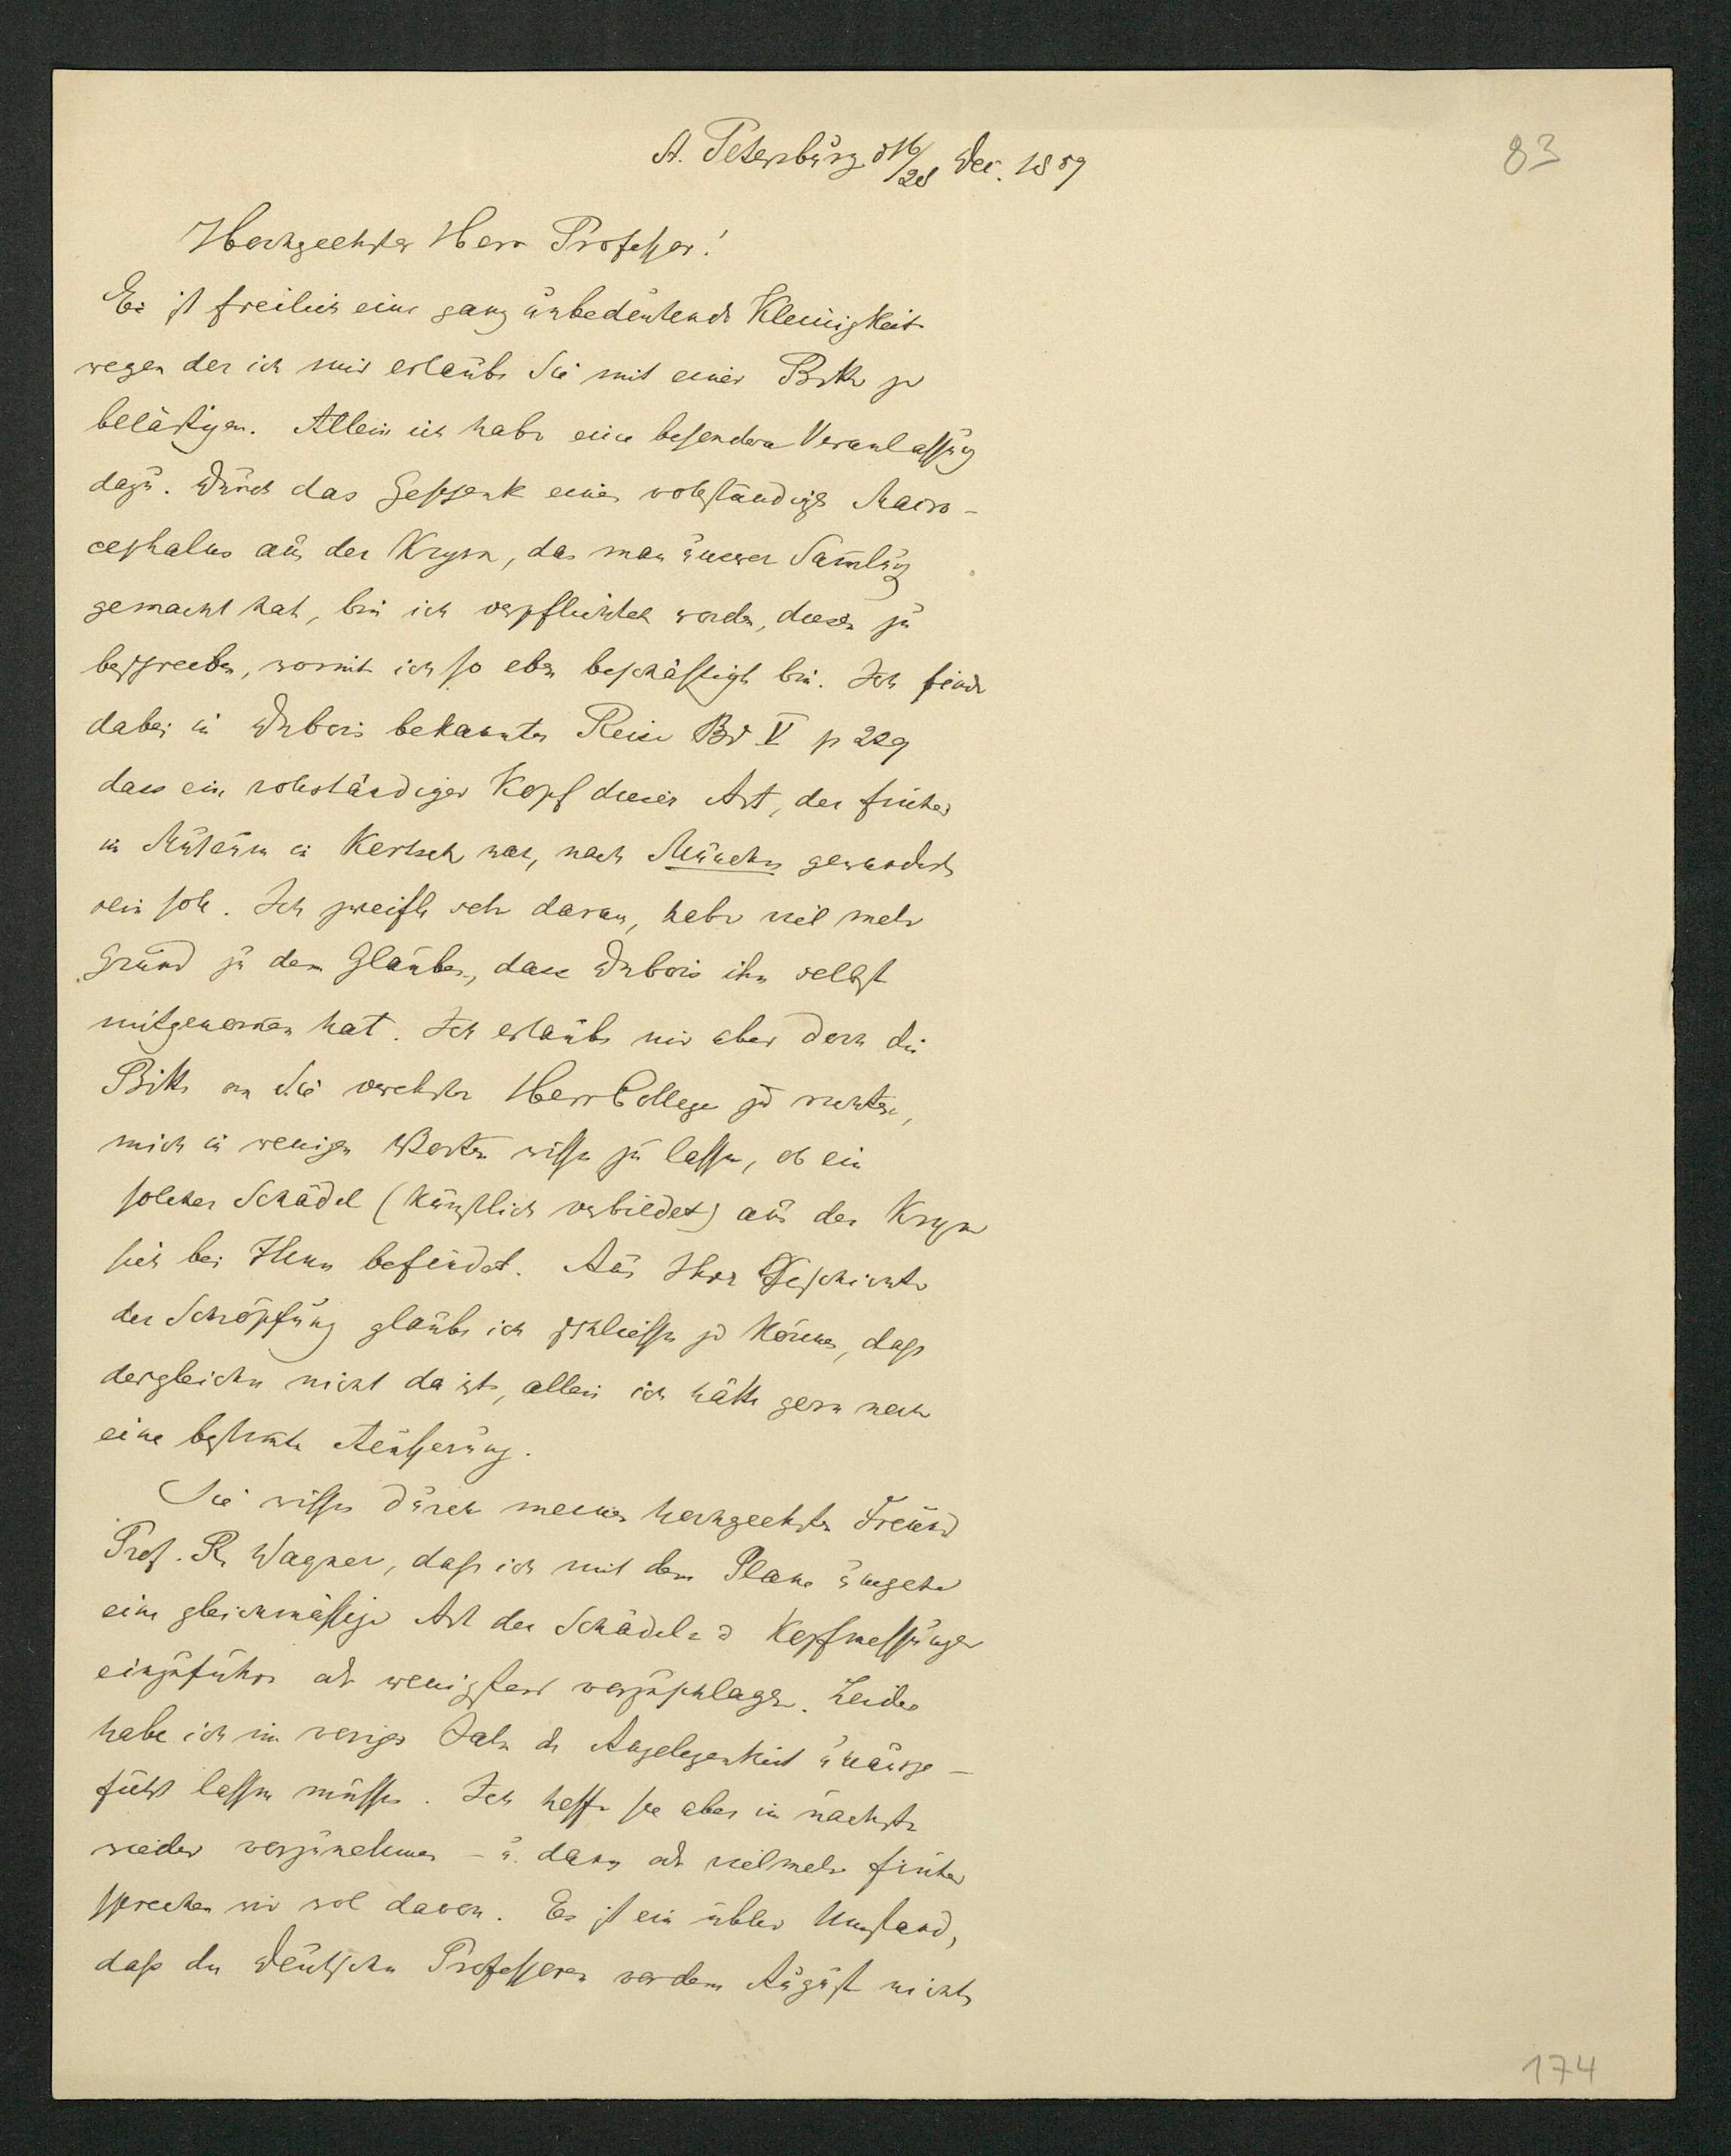 83
St. Petersburg d 16/28 Dec. 1859
Hochgeehrter Herr Professor!
Es ist freilich eine ganz unbedeutende Kleinigkeit
wegen der ich mir erlaube Sie mit einer Bitte zu
belästigen. Allein ich habe eine besondere Veranlassung
dazu. Durch das Geschenk eines vollständigen Macro-
cephalus aus der Krym, das man unserer Sammlung
gemacht hat, bin ich verpflichtet worden, diesen zu
beschreiben, womit ich so eben beschäftigt bin. Ich finde
dabei in Dubois bekannter Reise Bd V p 229
dass ein vollständiger Kopf dieser Art, der früher
im Museum in Kertsch war, nach München gewandert
sein soll. Ich zweifle sehr daran, habe viel mehr
Grund zu dem Glauben, dass Dubois ihn selbst
mitgenommen hat. Ich erlaube mir aber doch die
Bitte an Sie verehrter Herr College zu richten,
mich in wenigen Worten wissen zu lassen, ob ein
solcher Schädel (künstlich verbildet) aus der Krym
sich bei Ihnen befindet. Aus Ihrer Geschichte
der Schöpfung glaube ich schliessen zu können, dass
dergleichen nicht da ist, allein ich hätte gern noch
eine bestimmte Aeusserung.
Sie wissen durch meinen hochgeehrten Freund
Prof. R. Wagner, dass ich mit dem Plane umgehe
eine gleichmässige Art der Schädel u Kopfmessungen
einzuführen od wenigstens vorzuschlagen. Leider
habe ich im vorigen Jahr die Angelegenheit unausge-
führt lassen müssen. Ich hoffe sie aber im nächsten
wieder vorzunehmen – u. dann od vielmehr früher
sprechen wir wol davon. Es ist ein übler Umstand,
dass die Deutschen Professoren vor dem August nicht
174